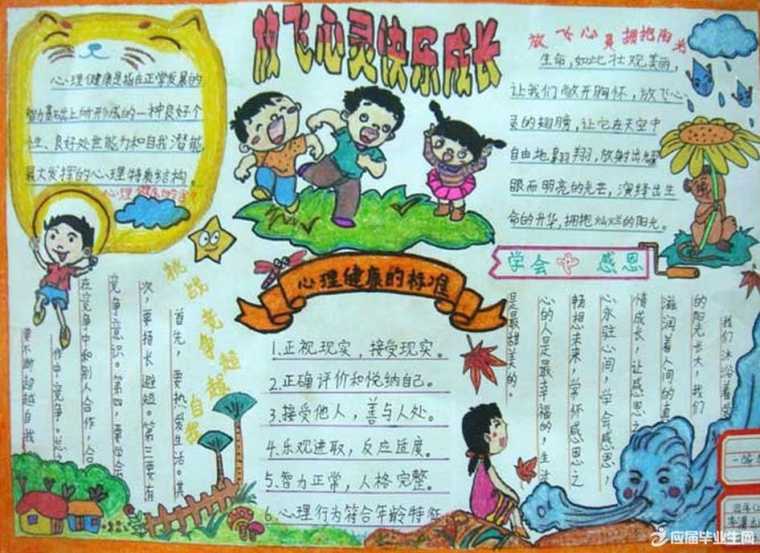 放飞心灵快乐成长
心理健康是指在正常发展的
智力基础上所形成的一种良好个
性、良好处世能力和自我潜能
最大发挥的心理特质结构。
心理健康的含义
放飞心灵拥抱阳光
生命,如此壮观美丽,
让我们敞开胸怀,放飞心
灵的翅膀,让它在天空中
自由地翱翔,放射出耀
眼而明亮的光芒,演绎出生
命的升华,拥抱灿烂的阳光。
学会 感恩
心理健康的标准
1.正视现实,接受现实。
2.正确评价和悦纳自己。
3.接受他人,善与人处。
4.乐观进取,反应适度。
5.智力正常,人格完整。
6.心理行为符合年龄特征
挑战竞争超越自我
首先,要热爱生活。其
次,要扬长避短。第三要有
竞争意识。第四,要学会
在竞争中和别人合作,合
作中竞争。总
要不断超越自我
我们沐浴着
的阳光长大,我们
滋润着人间的真
情成长,让感恩之
心永驻心间,学会感恩,
畅想未来,常怀感恩之
心的人是最幸福的,生活
是最甜美的。
应届毕业生网